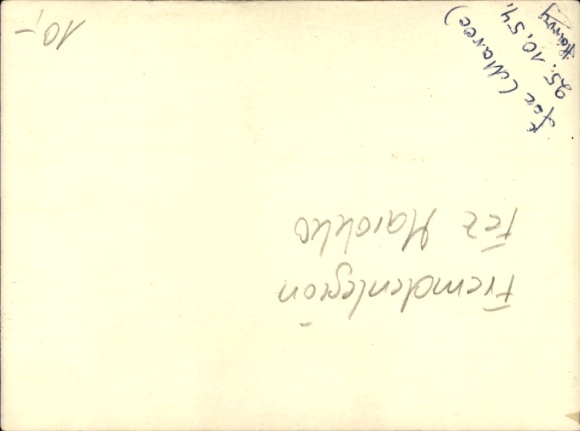 Fremdenlegion
Fez Marokko
Fez (Maroc)
25.10.54.
Harry
10,-